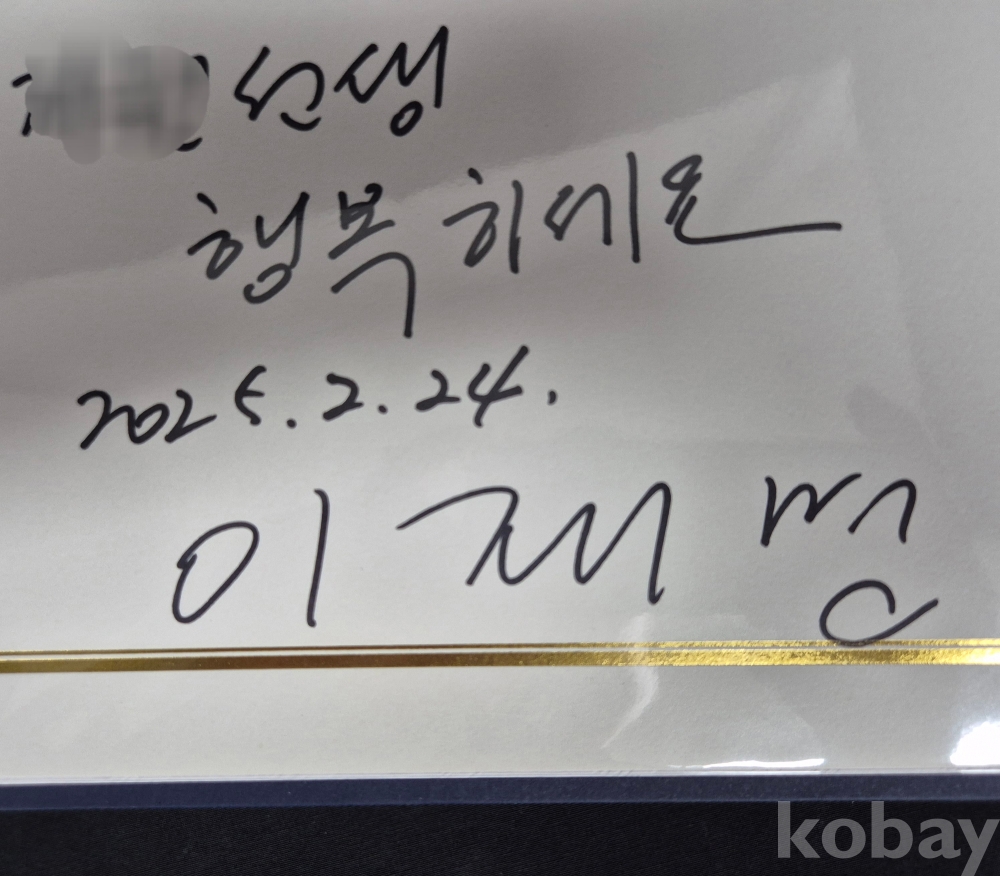 선생
행복하세요
2025.2.24.
이재명
kobay